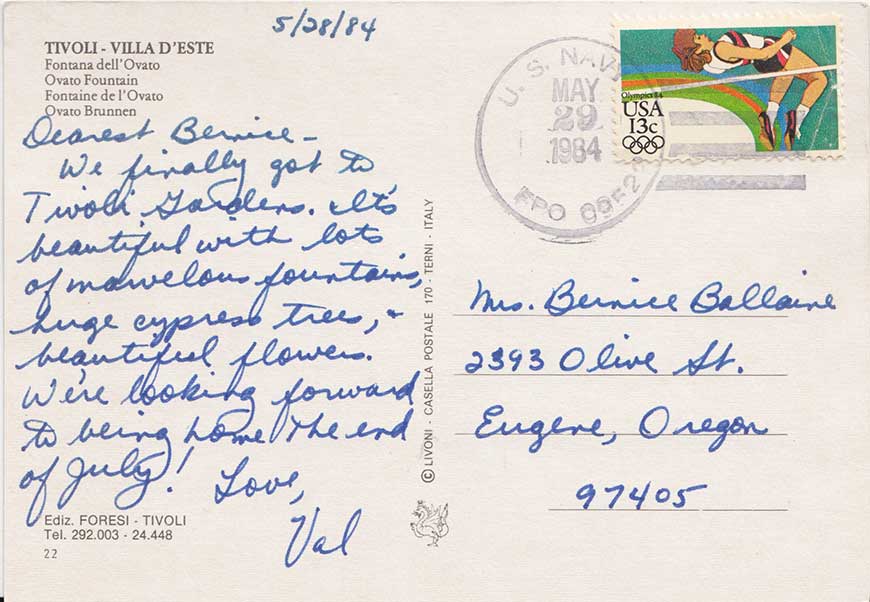 5/28/84
TIVOLI - VILLA D'ESTE
Fontana dell'Ovato
Ovato Fountain
Fontaine de l'Ovato
Ovato Brunnen
Dearest Bernice -
We finally got to
Tivoli Gardens. It's
beautiful with lots
of marvelous fountains,
huge cypress trees, &
beautiful flowers.
We're looking forward
to being home the end
of July!
Love,
Val
Ediz. FORESI - TIVOLI
Tel. 292.003 - 24.448
22
© LIVONI - CASELLA POSTALE 170 - TERNI - ITALY
U.S. NAVY
MAY
29
1984
FPO
Olympics 84
USA
13c
Mrs. Bernice Ballaine
2393 Olive St.
Eugene, Oregon
97405